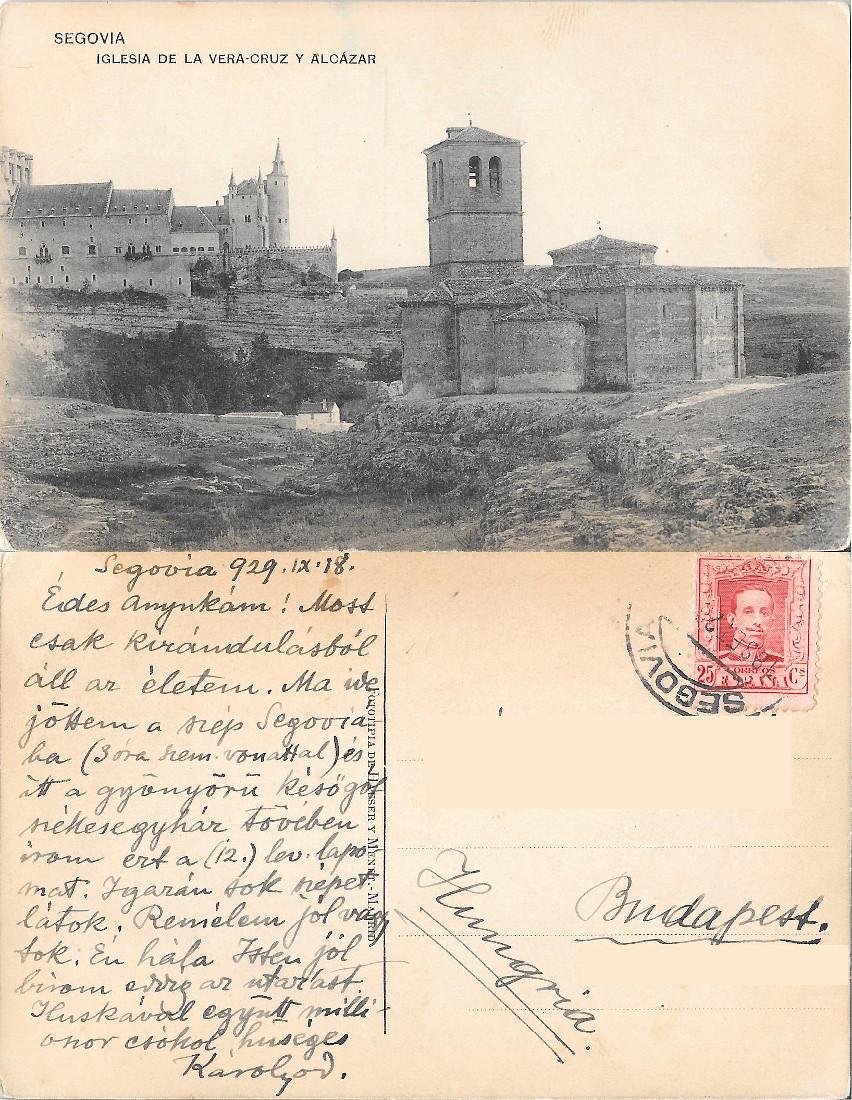 SEGOVIA
IGLESIA DE LA VERA-CRUZ Y ALCÁZAR
Segovia 929.IX.18.
Édes Anynkám! Most
csak kirándulásból
áll az életem. Ma ide
jöttem a szép Segovia-
ba (3 óra szem. vonattal) és
itt a gyönyörű későgót
székesegyház tövében
irom ezt a (12.) lev. lapo-
mat. Igazán sok szépet
látok. Remélem jól vagy-
tok. Én hála Isten jól
birom eddig az utazást.
Huskával együtt milli-
ószor csókol hűséges
Károlyod.
FOTOTIPIA DE HAUSER Y MENET.-MADRID
SEGOVIA
SEGOVIA
CORREOS
ESPAÑA
25 Cs
Budapest.
Hungria.